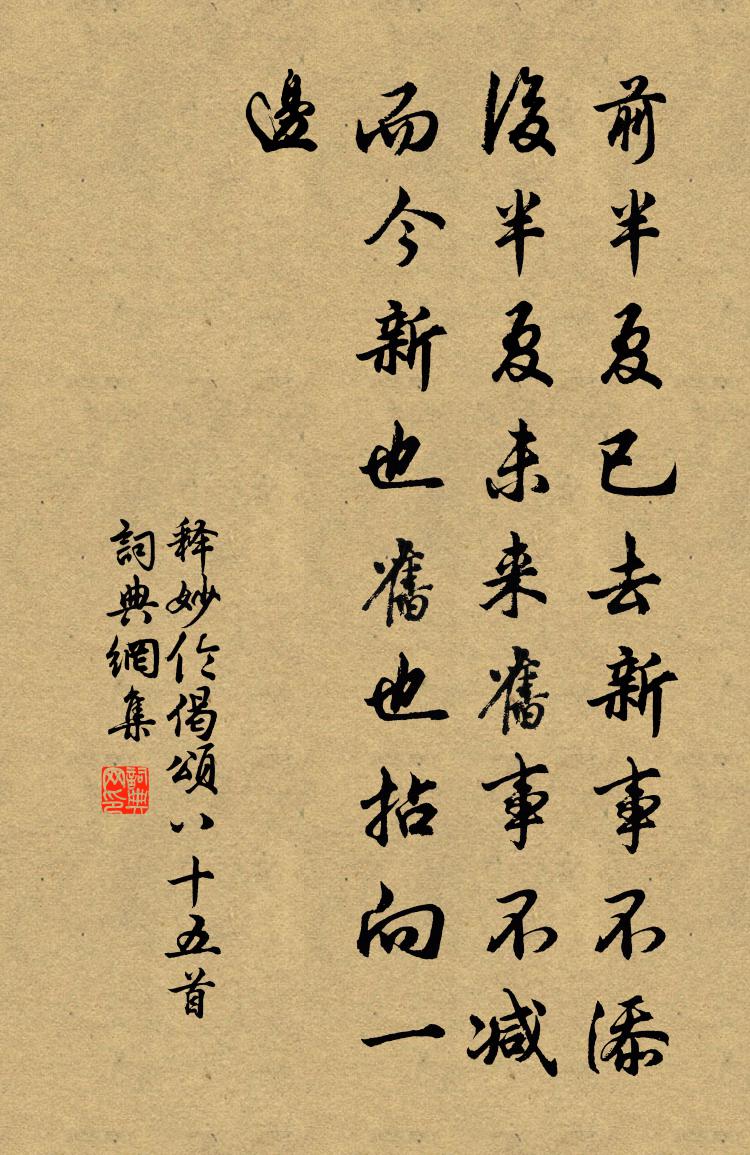 前半夏已去新事不添
後半夏未来舊事不減
而今新也舊也拈向一
邊
释妙伦偈頌八十五首
詞典網集
詞典网印